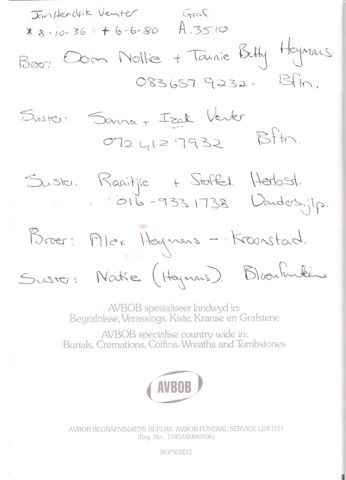 Jan Hendrik Venter Graf
* 8-10-36 + 6-6-80 A.3510
Broer: Oom Nollie + Tannie Betty Heymans
083 657 9232. Bftn.
Suster: Sanna + Izak Venter
072 412 7932 Bftn
Suster: Raaitjie + Stoffel Herbst.
016-933 1738 Vanderbijlp.
Broer: Alex Heymans - Kroonstad.
Suster: Natie (Heymans) Bloemfontein
AVBOB spesialiseer landwyd in:
Begrafnisse, Verassings, Kiste, Kranse en Grafstene
AVBOB specialise country wide in:
Burials, Cremations, Coffins, Wreaths and Tombstones
AVBOB
AVBOB BEGRAFNISDIENS BEPERK AVBOB FUNERAL SERVICE LIMITED
(Reg. No.